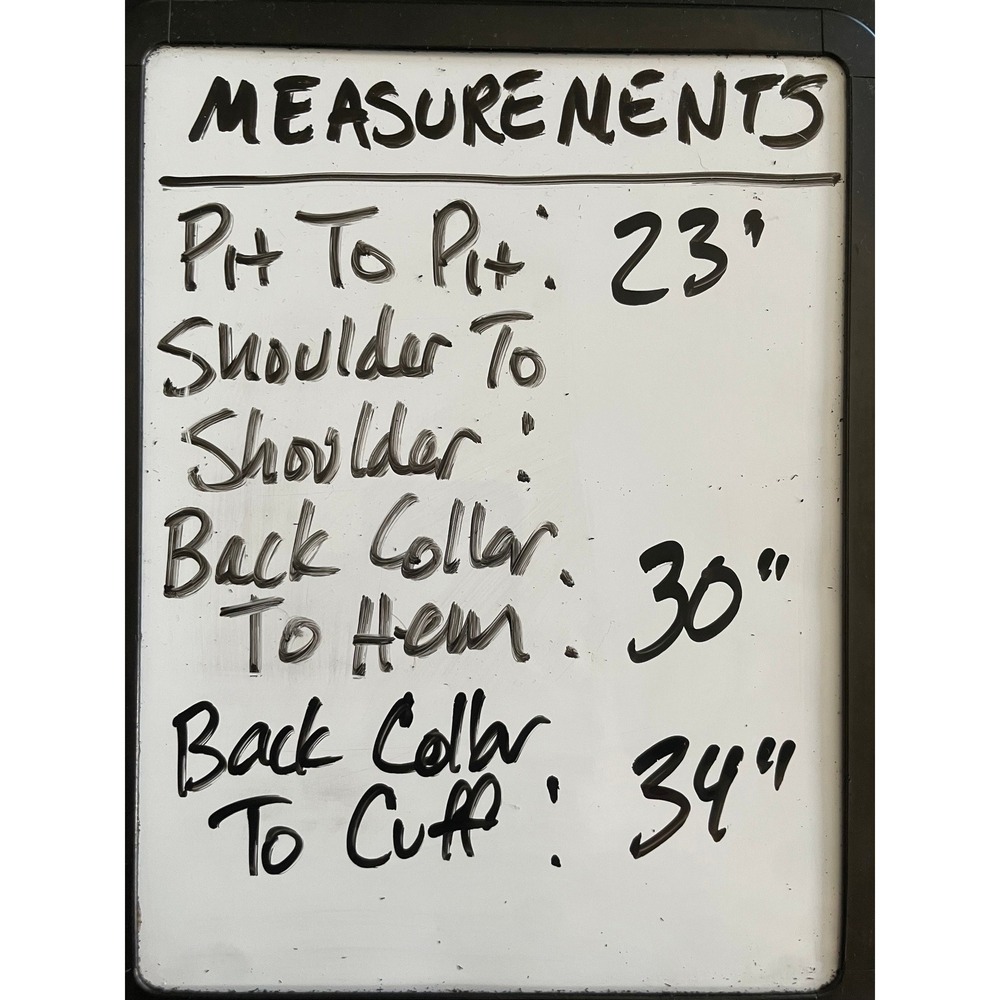 MEASUREMENTS
Pit To Pit: 23"
Shoulder To
Shoulder:
Back Collar
To Hem: 30"
Back Collar
To Cuff: 34"